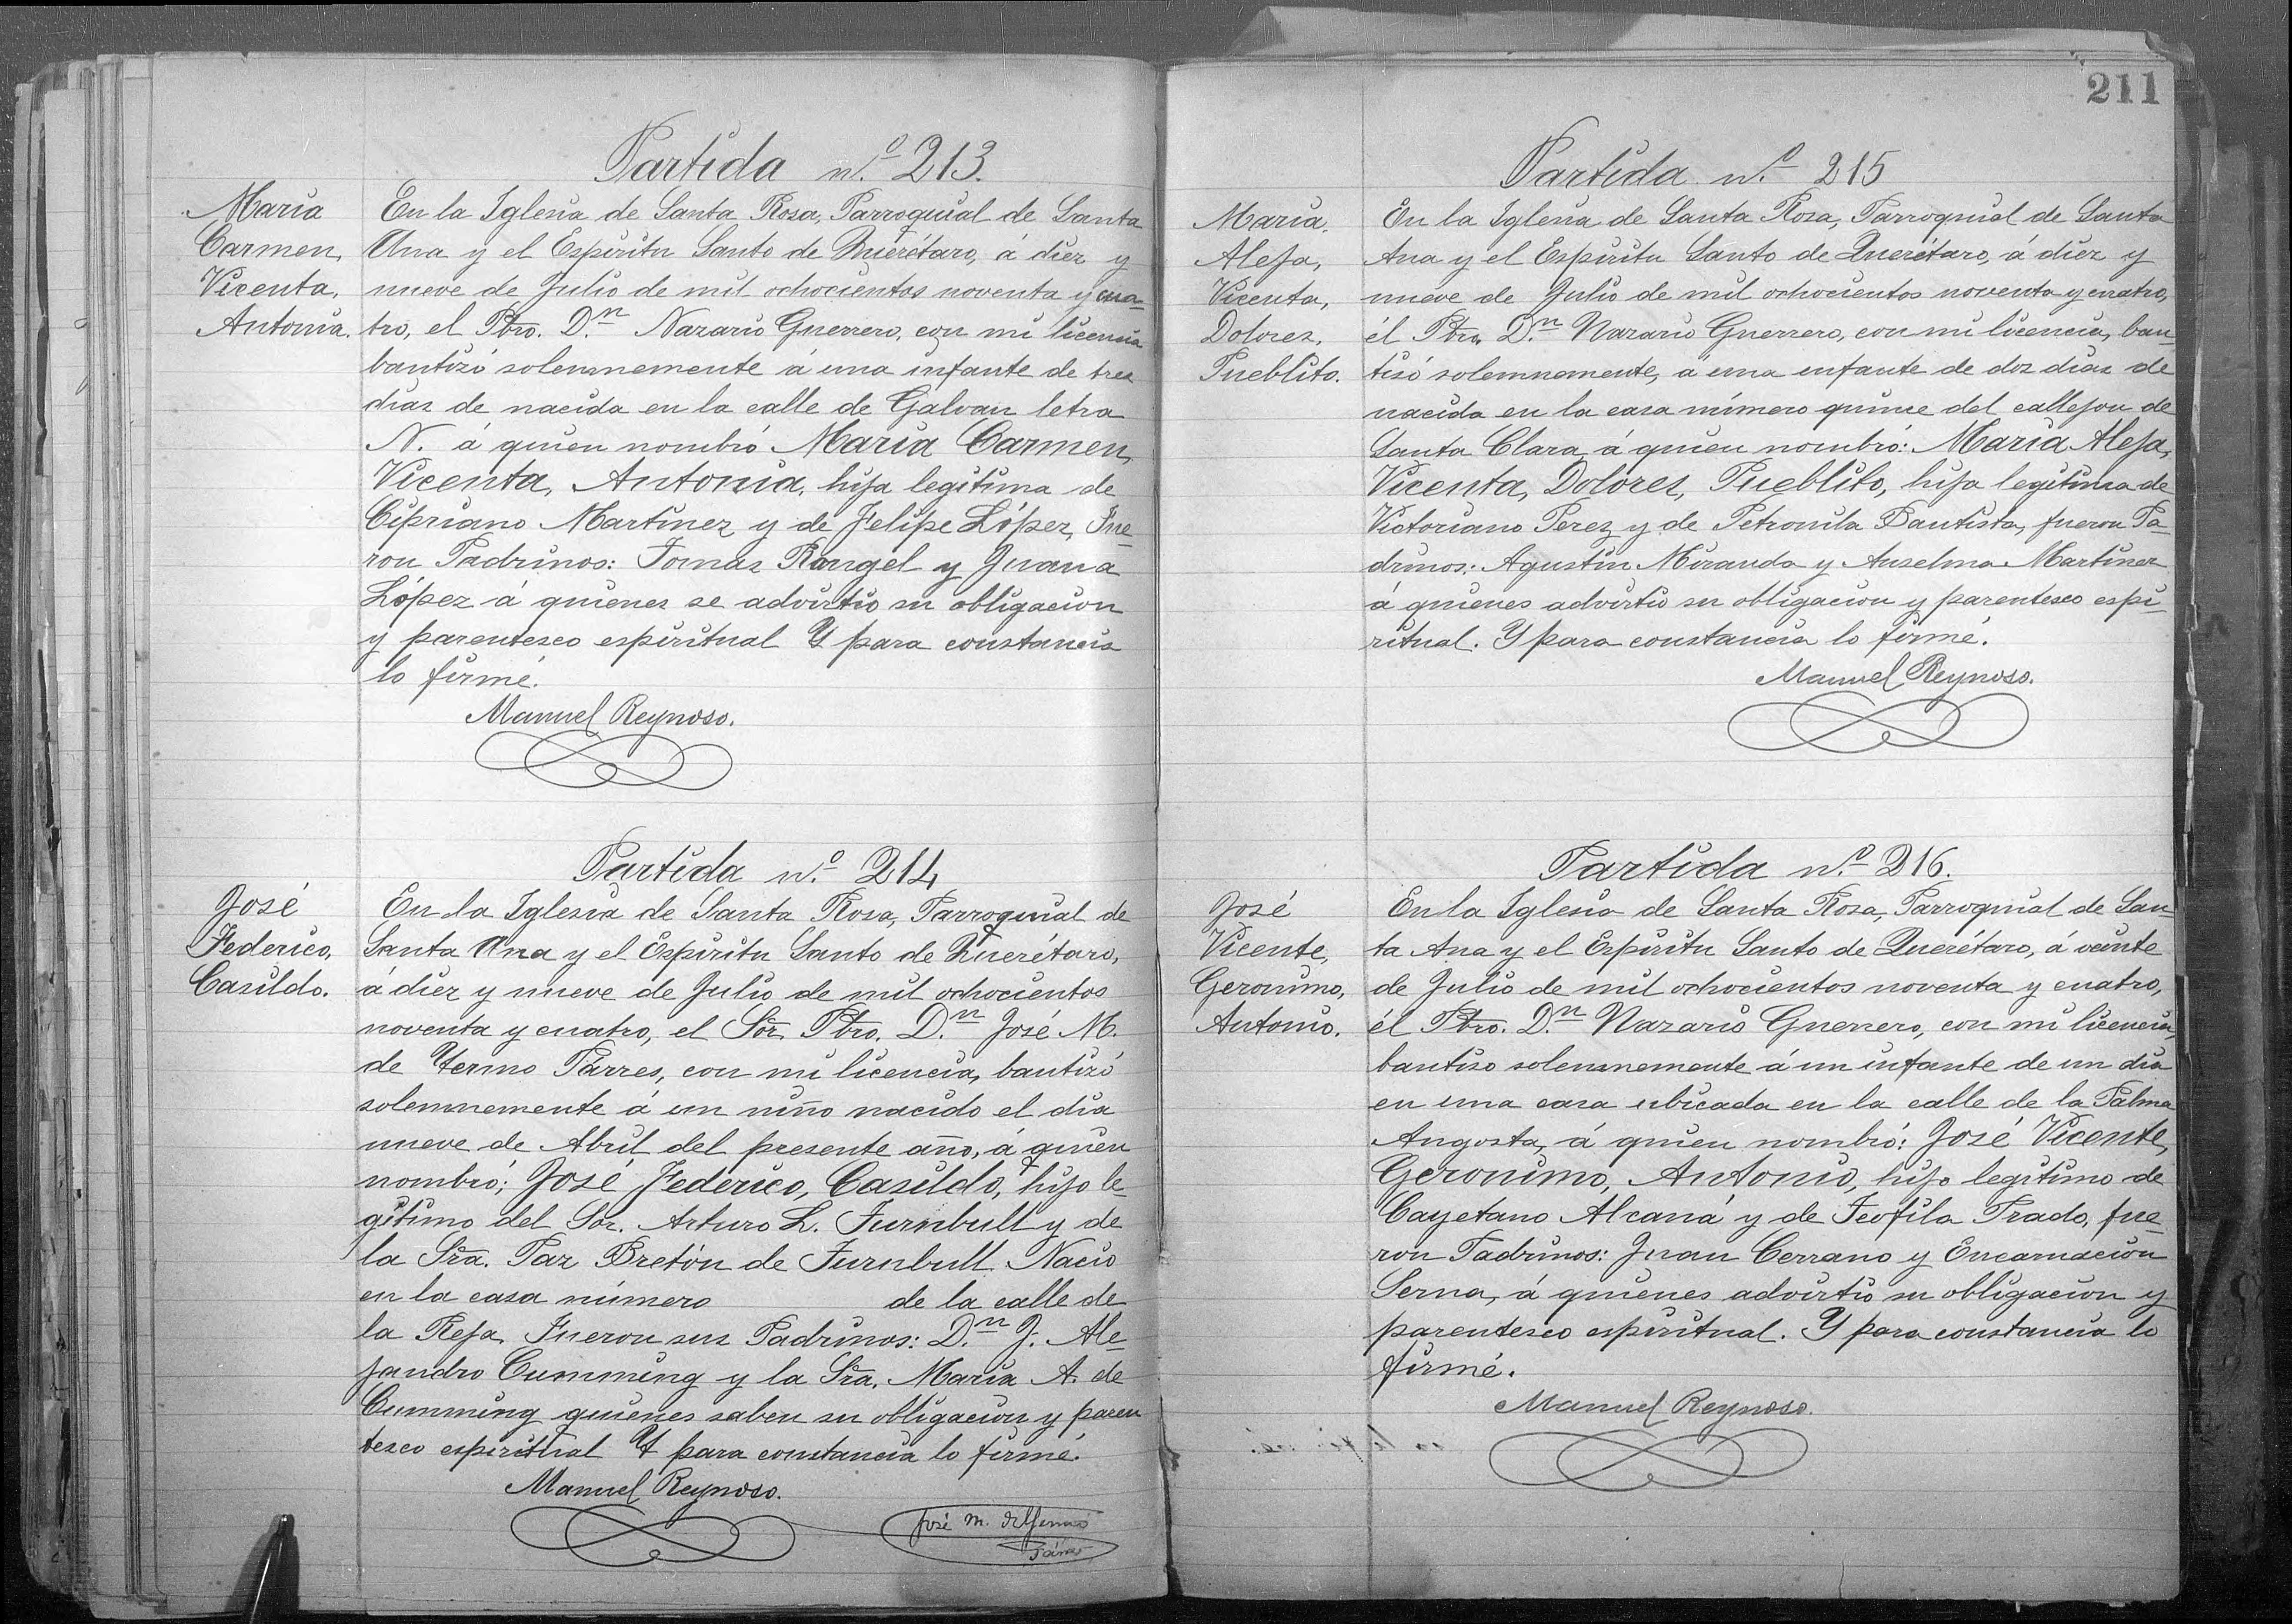 Partida n.º 213.
María
Carmen,
Vicenta,
Antonia.
En la Iglesia de Santa Rosa, Parroquial de Santa
Ana y el Espíritu Santo de Querétaro, á diez y
nueve de Julio de mil ochocientos noventa y cua-
tro, el Pbro. D.n Nazario Guerrero, con mi licencia
bautizó solemnemente á una infante de tres
dias de nacida en la calle de Galvan letra
N. á quien nombró María Carmen,
Vicenta, Antonia, hija legítima de
Cipriano Martinez y de Felipe López, Fue-
ron Padrinos: Tomas Rangel y Juana
López á quienes se advirtió su obligacion
y parentesco espiritual Y para constancia
lo firmé.
Manuel Reynoso.
Partida n.º 214
José
Federico,
Casildo.
En la Iglesia de Santa Rosa, Parroquial de
Santa Ana y el Espíritu Santo de Querétaro,
á diez y nueve de Julio de mil ochocientos
noventa y cuatro, el Sór. Pbro. D.n José M.
de Yermo Párres, con mi licencia, bautizó
solemnemente á un niño nacido el dia
nueve de Abril del presente año, á quien
nombró; José Federico, Casildo, hijo le-
gítimo del Sór. Arturo L. Turnbull y de
la Sra. Paz Bretón de Turnbull. Nació
en la casa número de la calle de
la Reja. Fueron sus Padrinos: D.n J. Ale-
jandro Cumming y la Sra. María A. de
Cumming quienes saben su obligacion y paren
tesco espiritual Y para constancia lo firmé.
Manuel Reynoso.
José M. de Yermo
Párres
211
Partida n.º 215
María,
Aleja,
Vicenta,
Dolores,
Pueblito.
En la Iglesia de Santa Rosa, Parroquial de Santa
Ana y el Espíritu Santo de Querétaro, á diez y
nueve de Julio de mil ochocientos noventa y cuatro,
él Pbro. D.n Nazario Guerrero, con mi licencia, bau-
tisó solemnemente, a una infante de dos dias de
nacida en la casa número quince del callejon de
Santa Clara á quien nombró: María Aleja,
Vicenta, Dolores, Pueblito, hija legítima de
Victoriano Perez y de Petronila Bautista, fueron Pa-
drinos: Agustin Miranda y Anselma Martinez
á quienes advirtió su obligacion y parentesco espi-
ritual. Y para constancia lo firmé.
Manuel Reynoso.
Partida n.º 216.
José
Vicente,
Geronimo,
Antonio.
En la Iglesia de Santa Rosa, Parroquial de San-
ta Ana y el Espíritu Santo de Querétaro, á veinte
de Julio de mil ochocientos noventa y cuatro,
él Pbro. D.n Nazario Guerrero, con mi licencia,
bautiso solemnemente á un infante de un dia
en una casa ubicada en la calle de la Palma
Angosta, á quien nombró: José Vicente,
Geronimo, Antonio, hijo legítimo de
Cayetano Alcaná y de Teofila Prado, fue-
ron Padrinos: Juan Cerrano y Encarnacion
Serna, á quienes advirtió su obligacion y
parentesco espiritual. Y para constancia lo
firmé.
Manuel Reynoso.